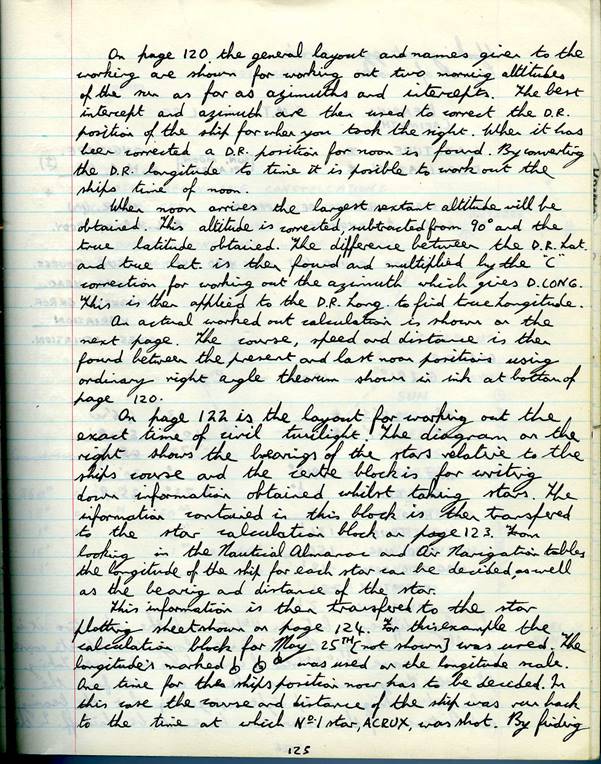 On page 120 the general layout and names given to the
working are shown for working out two morning altitudes
of the sun as far as azimuths and intercepts. The best
intercept and azimuth are then used to correct the D.R.
position of the ship for when you took the sight. When it has
been corrected a D.R. position for noon is found. By converting
the D.R. longitude to time it is posible to work out the
ships time of noon.
When noon arrives the largest sextant altitude will be
obtained. This altitude is corrected, subtracted from 90° and the
true latitude obtained. The difference between the D.R. Lat.
and true Lat. is then found and multiplied by the "C"
correction for working out the azimuth which gives D.LONG.
This is then applied to the D.R. Long. to find true Longitude.
An actual worked out calculation is shown on the
next page. The course, speed and distance is then
found between the present and last noon positions using
ordinary right angle theorum shown in ink at bottom of
page 120.
On page 122 is the layout for working out the
exact time of civil twilight. The diagram on the
right shows the bearings of the stars relative to the
ships course and the centre block is for writing
down information obtained whilst taking stars. The
information contained in this block is then transfered
to the star calculation block on page 123. From
looking in the Nautical Almanac and Air Navigation tables
the longitude of the ship for each star can be decided, as well
as the bearing and distance of the star.
This information is then transfered to the star
plotting sheet shown on page 124. For this example the
calculation block for May 25TH [not shown] was used. The
longitude's marked was used on the longitude scale.
One time for the ships position now has to be decided. In
this case the course and distance of the ship was run back
to the time at which No.1 star, ACRUX, was shot. By finding
125